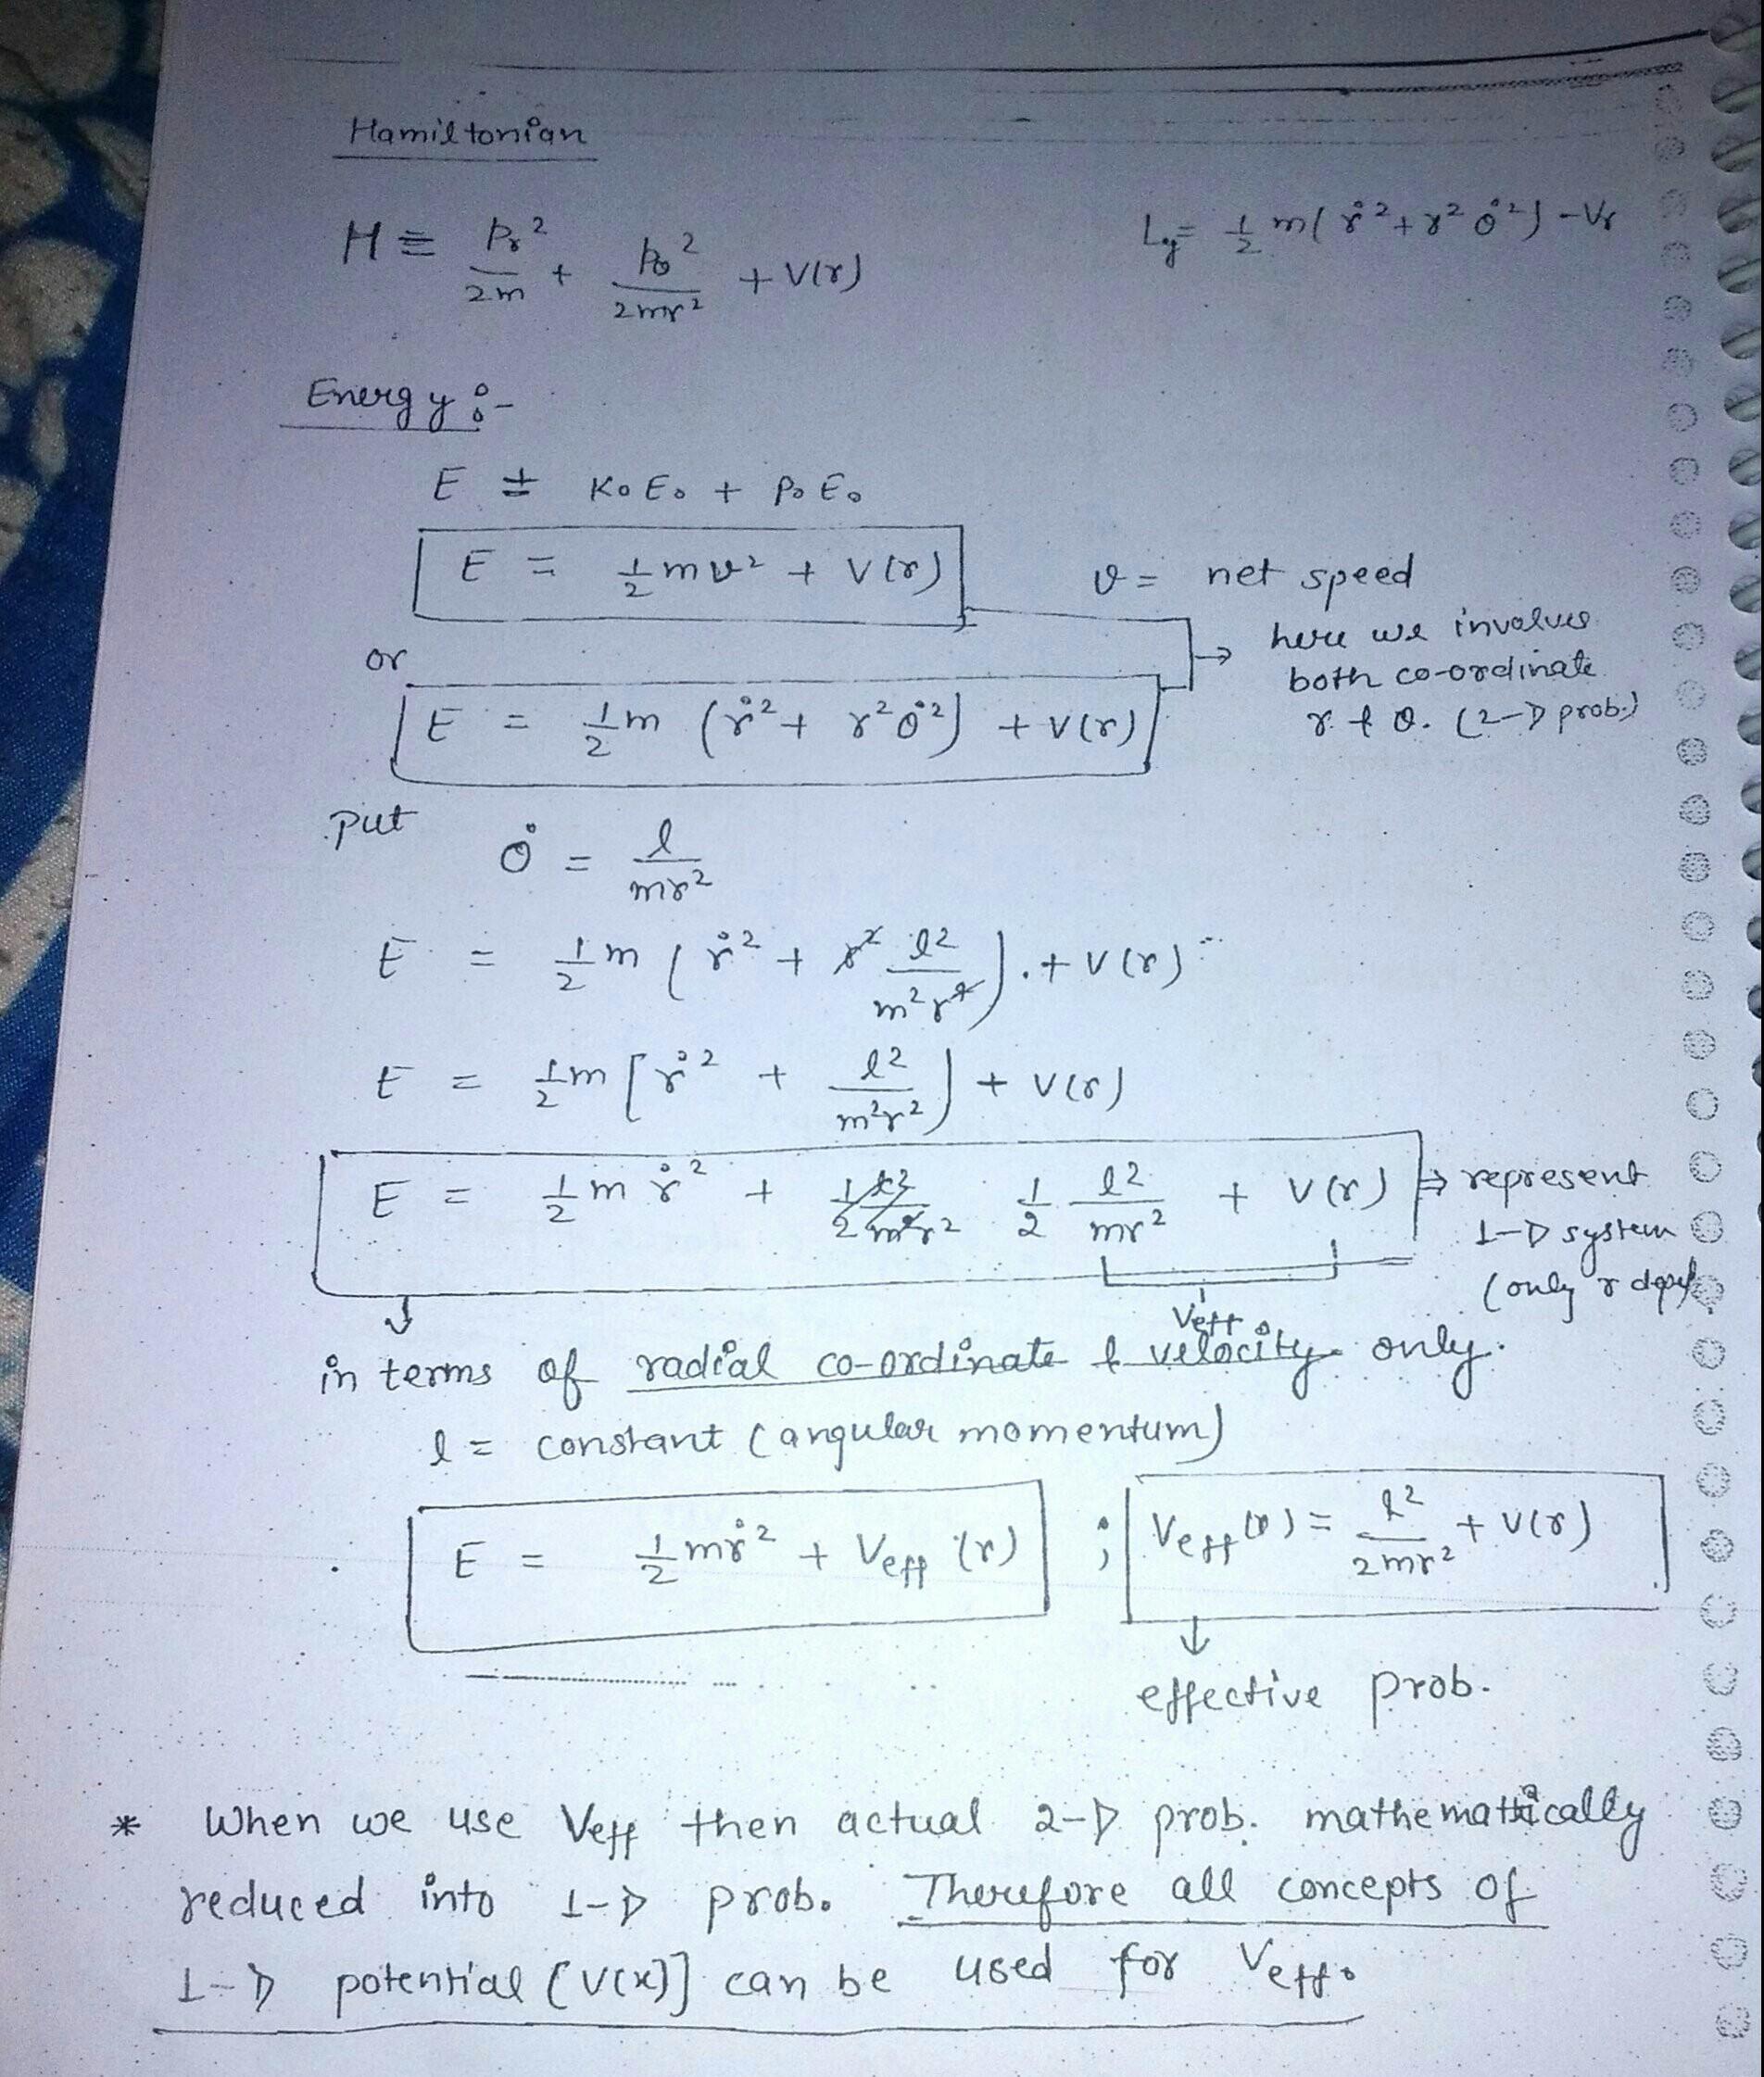 Hamiltonian
H ≡ Pr²/2m + Pθ²/2mr² + V(r)
L = 1/2 m(ṙ² + r² θ̇²) - Vr
Energy :-
E = K.E. + P.E.
E = 1/2 mv² + V(r)
v = net speed
here we involves
both co-ordinate
r & θ. (2-D prob.)
or
E = 1/2 m (ṙ² + r² θ̇²) + V(r)
put
θ̇ = l/mr²
E = 1/2 m (ṙ² + r² l²/m²r⁴) + V(r)
E = 1/2 m [ṙ² + l²/m²r²) + V(r)
E = 1/2 m ṙ² + 1/2 l²/mr² + V(r) ⇒ represent
1-D system
(only r
Veff
in terms of radial co-ordinate & velocity only.
l = constant (angular momentum)
E = 1/2 mṙ² + Veff (r) ; Veff(r) = l²/2mr² + V(r)
effective prob.
* When we use Veff then actual 2-D prob. mathematically
reduced into 1-D prob. Therefore all concepts of
1-D potential [V(x)] can be used for Veff.